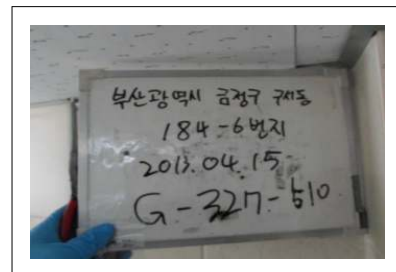 부산광역시 금정구 구서동
184-6번지
2013.04.15
G-327-510